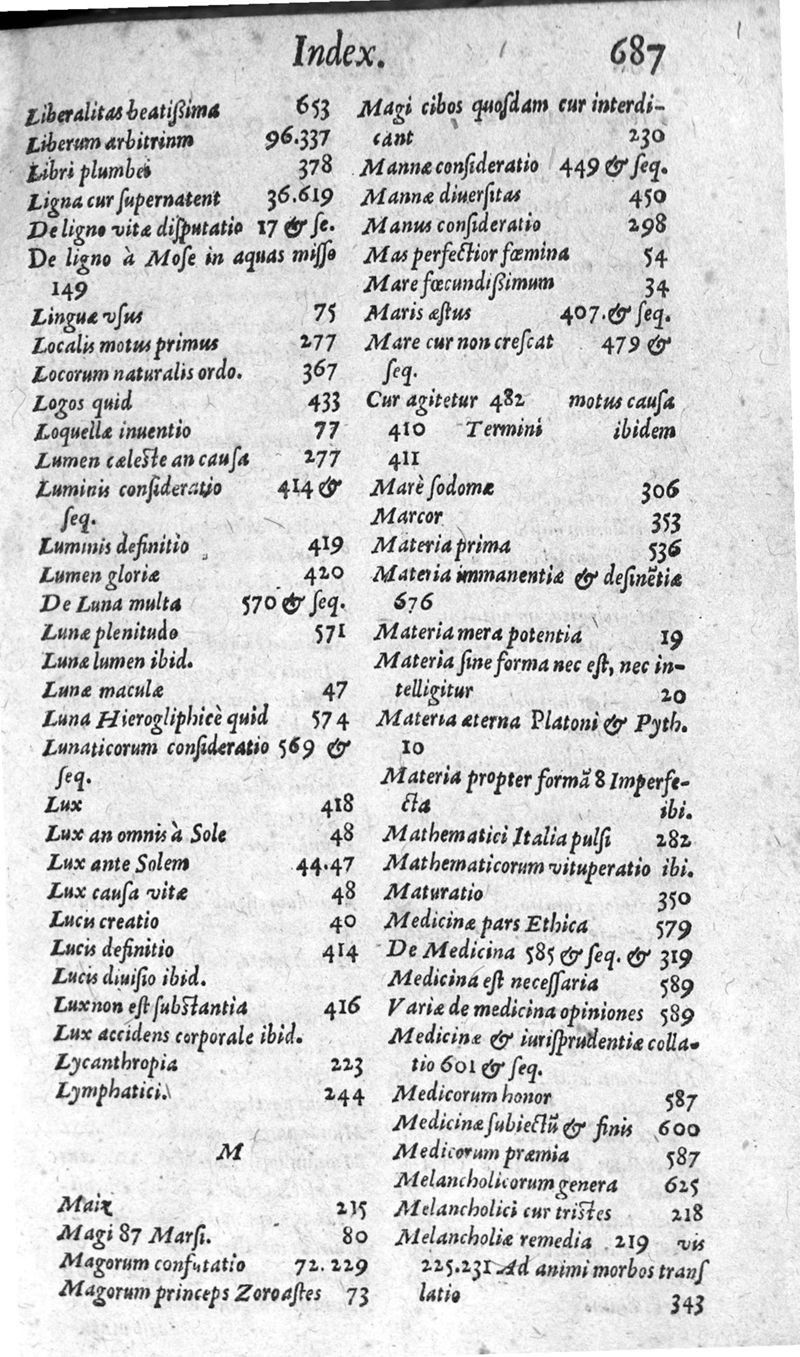 Index. 687
Liberalitas beatißima 653
Liberum arbitrium 96.337
Libri plumbei 378
Ligna cur ſupernatent 36.619
De ligno vitæ diſputatio 17 & ſe.
De ligno à Moſe in aquas miſſo
149
Linguæ vſus 75
Localis motus primus 277
Locorum naturalis ordo. 367
Logos quid 433
Loquellæ inuentio 77
Lumen cæleſte an cauſa 277
Luminis conſideratio 414 &
ſeq.
Luminis definitio 419
Lumen gloriæ 420
De Luna multa 570 & ſeq.
Lunæ plenitudo 571
Lunæ lumen ibid.
Lunæ maculæ 47
Luna Hierogliphicè quid 574
Lunaticorum conſideratio 569 &
ſeq.
Lux 418
Lux an omnis à Sole 48
Lux ante Solem 44.47
Lux cauſa vitæ 48
Lucis creatio 40
Lucis definitio 414
Lucis diuiſio ibid.
Lux non eſt ſubſtantia 416
Lux accidens corporale ibid.
Lycanthropia 223
Lymphatici. 244
M
215
Magi 87 Marſi. 80
Magorum confutatio 72.229
Magorum princeps Zoroaſtes 73
Magi cibos quoſdam cur interdi-
cant 230
Mannæ conſideratio 449 & ſeq.
Mannæ diuerſitas 450
Manus conſideratio 298
Mas perfectior fœmina 54
Mare fœcundißimum 34
Maris æſtus 407. & ſeq.
Mare cur non creſcat 479 &
ſeq.
Cur agitetur 482 motus cauſa
410 Termini ibidem
411
Marè ſodomæ 306
Marcor 353
Materia prima 536
Materia immanentiæ & deſinẽtiæ
676
Materia mera potentia 19
Materia ſine forma nec eſt, nec in-
telligitur 20
Materia æterna Platoni & Pyth.
10
Materia propter formã 8 Imperfe-
cta ibi.
Mathematici Italia pulſi 282
Mathematicorum vituperatio ibi.
Maturatio 350
Medicinæ pars Ethica 579
De Medicina 585 & ſeq. & 319
Medicina eſt neceſſaria 589
Variæ de medicina opiniones 589
Medicinæ & iuriſprudentiæ colla-
tio 601 & ſeq.
Medicorum honor 587
Medicinæ ſubiectũ & finis 600
Medicorum præmia 587
Melancholicorum genera 625
Melancholici cur triſtes 218
Melancholiæ remedia 219 vis
225.231 Ad animi morbos tranſ
latio 343